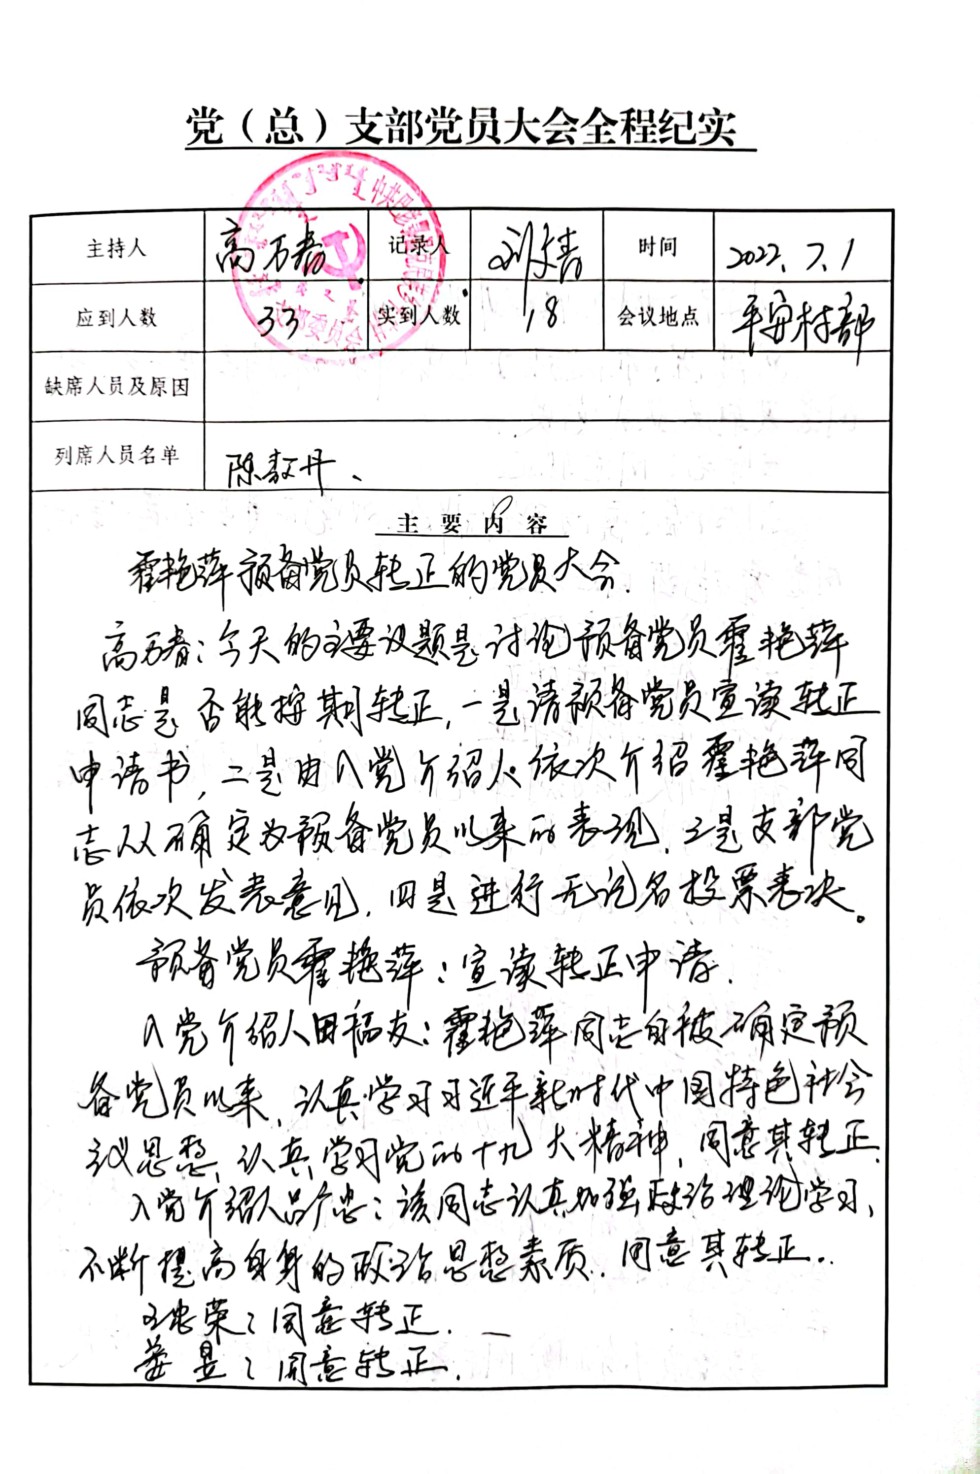 党（总）支部党员大会全程纪实
主持人 高万春 记录人 刘文青 时间 2022.7.1
应到人数 33 实到人数 18 会议地点 平安村部
缺席人员及原因
列席人员名单 陈敖丹、
主要内容
霍艳萍预备党员转正的党员大会.
高万春：今天的主要议题是讨论预备党员霍艳萍
同志是否能按期转正，一是请预备党员宣读转正
申请书，二是由入党介绍人依次介绍霍艳萍同
志从确定为预备党员以来的表现，三是支部党
员依次发表意见，四是进行无记名投票表决。
预备党员霍艳萍：宣读转正申请.
入党介绍人田福友：霍艳萍同志自被确定预
备党员以来，认真学习习近平新时代中国特色社会
议思想，认真学习党的十九大精神，同意其转正.
入党介绍人吕广忠：该同志认真加强政治理论学习，
不断提高自身的政治思想素质，同意其转正..
王忠荣：同意转正.
姜昱：同意转正.